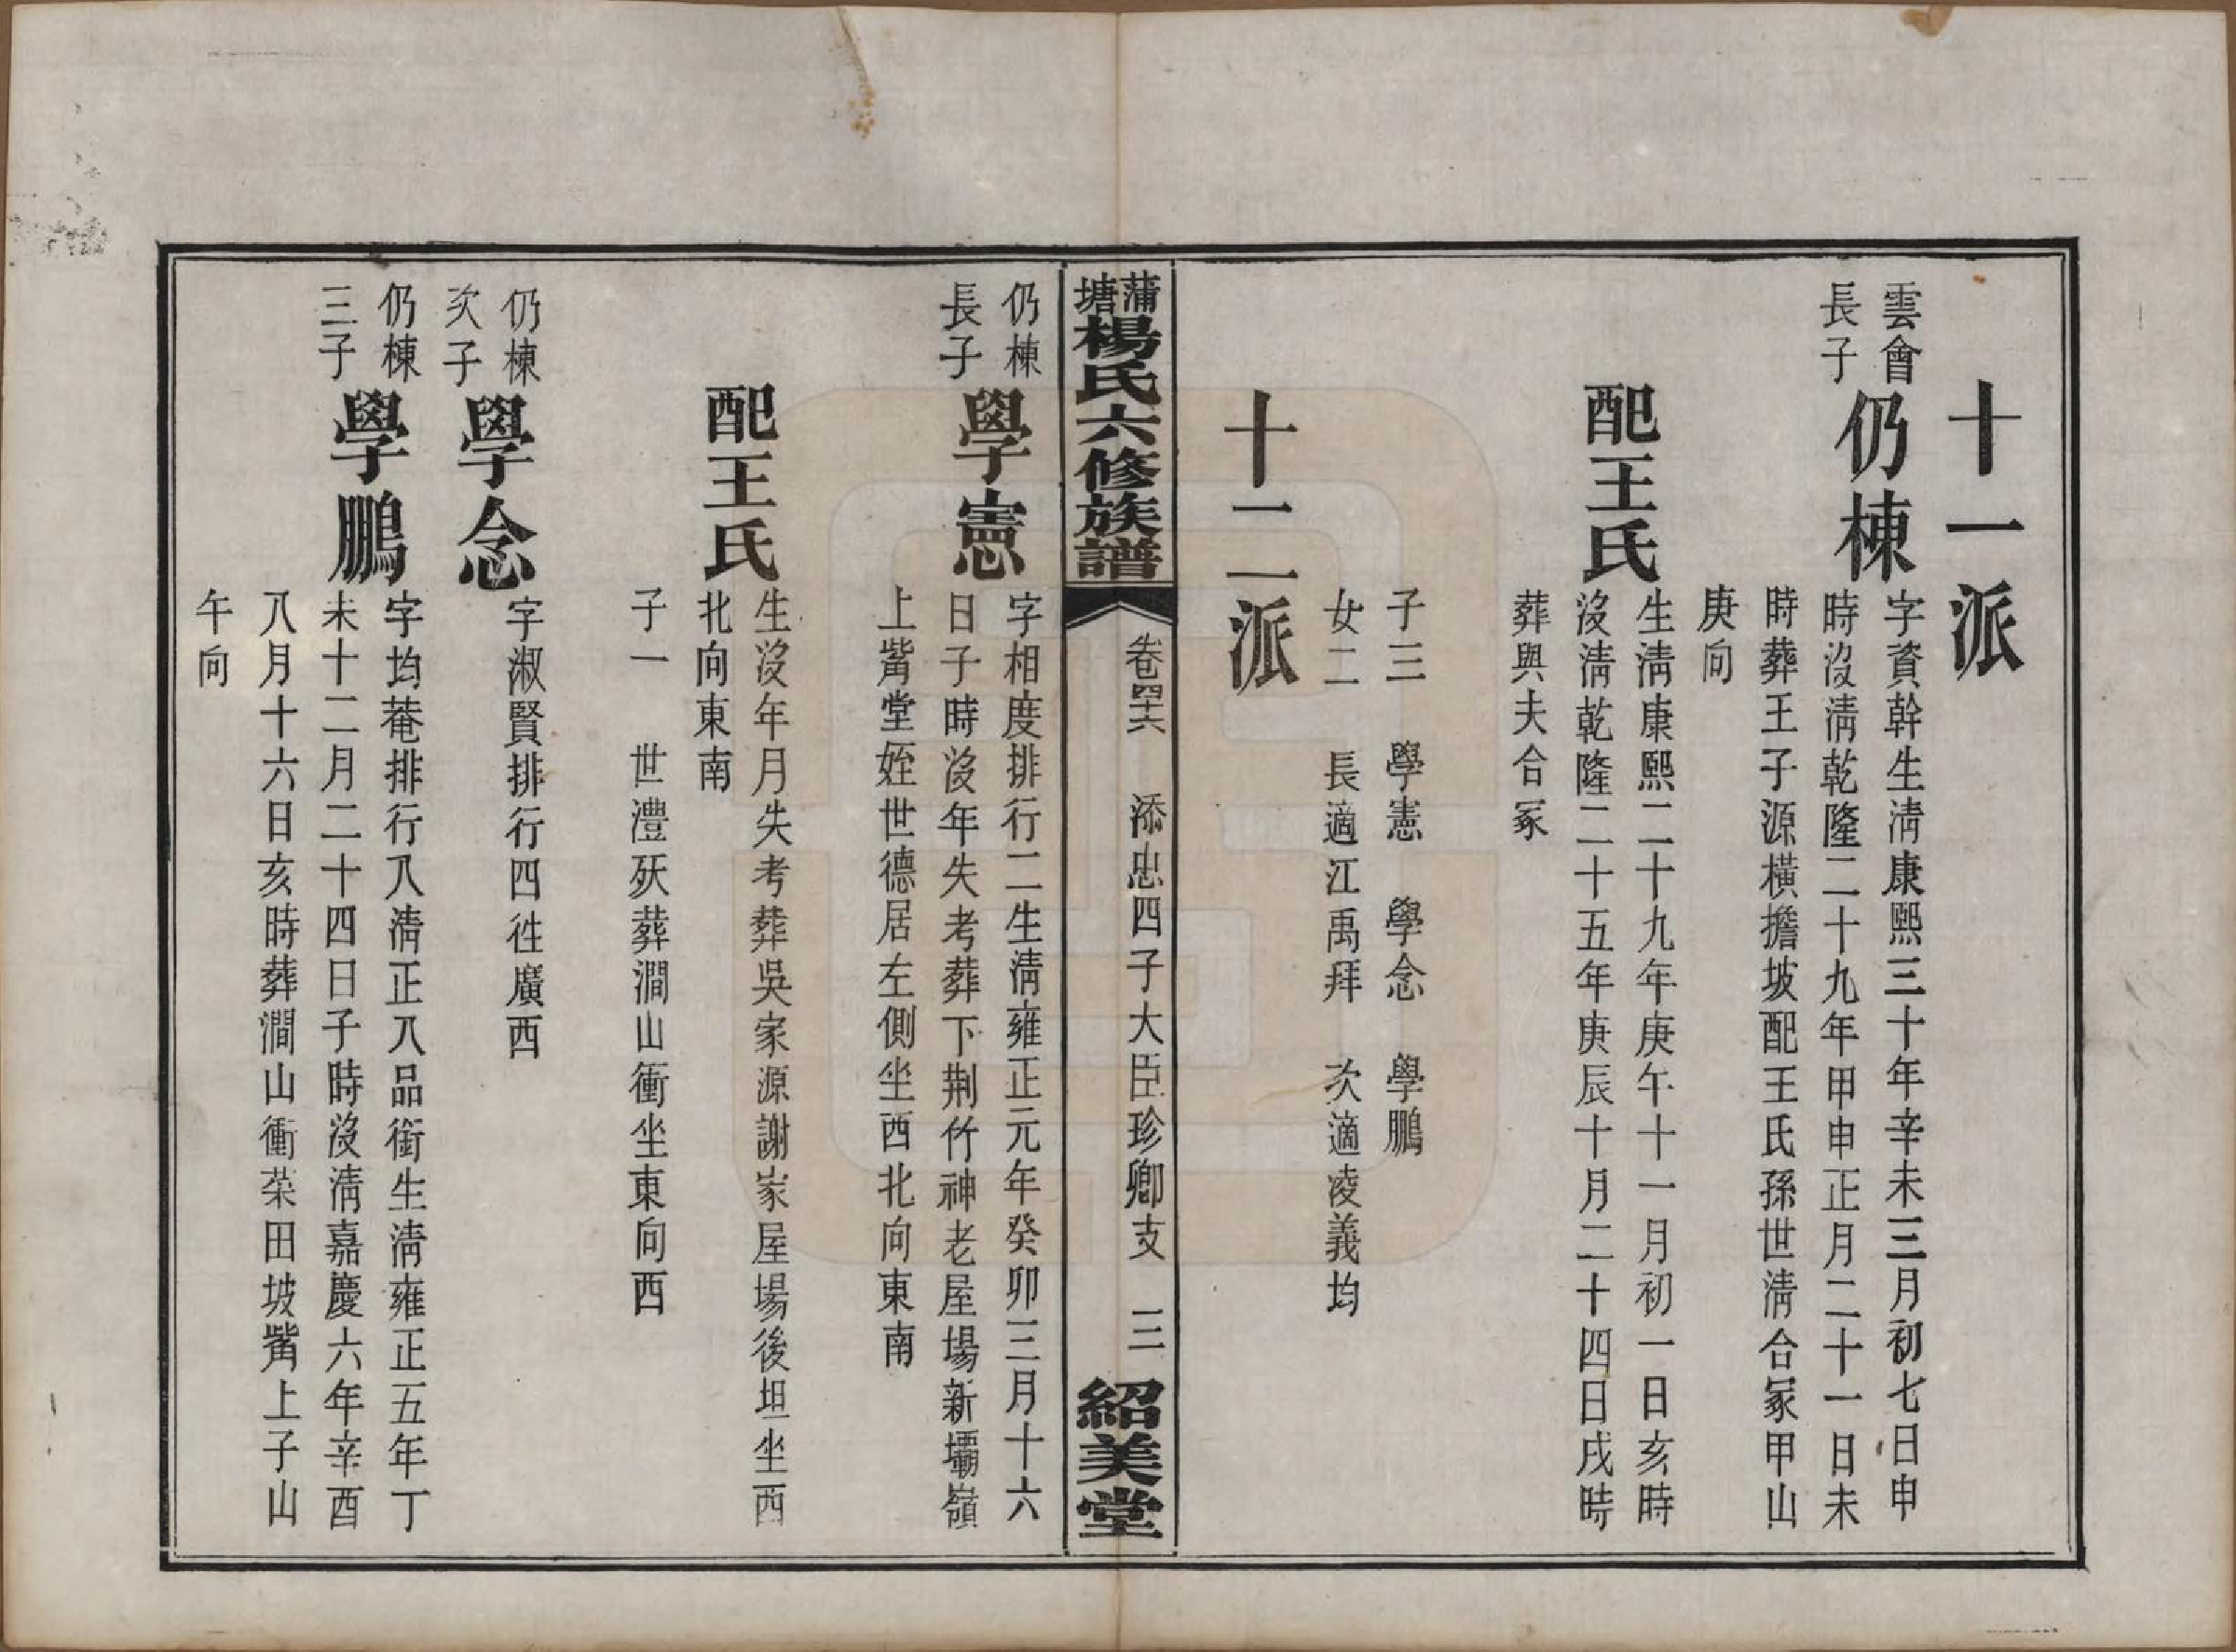 十一派
雲會
長子
仍棟
字資幹生淸康熙三十年辛未三月初七日申
時沒淸乾隆二十九年甲申正月二十一日未
時葬王子源橫擔坡配王氏孫世淸合冢甲山
庚向
配王氏
生淸康熙二十九年庚午十一月初一日亥時
沒淸乾隆二十五年庚辰十月二十四日戌時
葬與夫合冢
子三 學憲 學念 學鵬
女二 長適江禹拜 次適凌義均
十二派
蒲塘楊氏六修族譜 卷四十六 添忠四子大臣珍卿支 三 紹美堂
仍棟
長子
學憲
字相度排行二生淸雍正元年癸卯三月十六
日子時沒年失考葬下荆竹神老屋場新壩嶺
上觜堂姪世德居左側坐西北向東南
配王氏
生沒年月失考葬吳家源謝家屋場後坦坐西
北向東南
子一 世澧殀葬澗山衝坐東向西
仍棟
次子
學念
字淑賢排行四徃廣西
仍棟
三子
學鵬
字均菴排行八淸正八品銜生淸雍正五年丁
未十二月二十四日子時沒淸嘉慶六年辛酉
八月十六日亥時葬澗山衝菜田坡觜上子山
午向